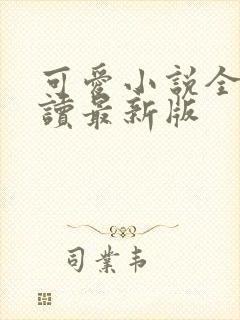 可愛小説全
讀最新版
司業韦